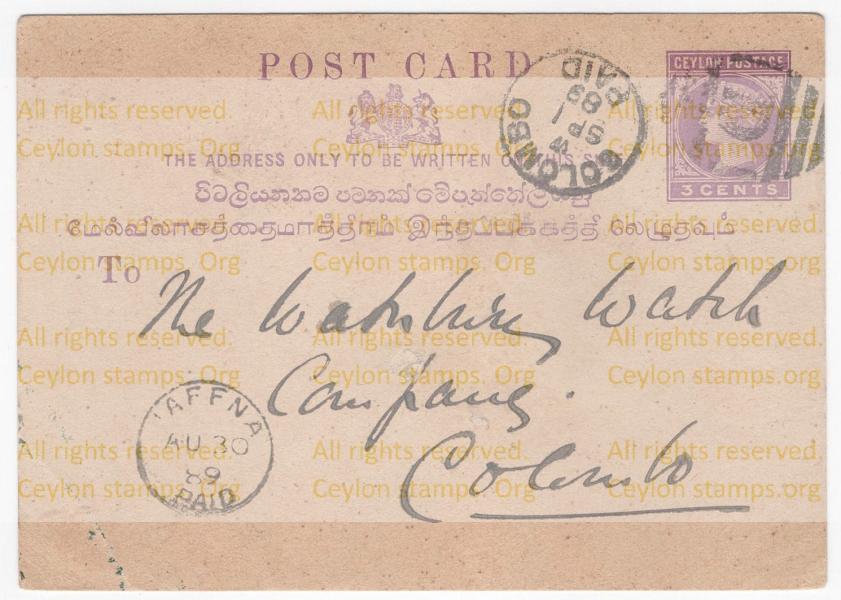 POST CARD
CEYLON POSTAGE
3 CENTS
COLOMBO
PAID
SP 1
89
THE ADDRESS ONLY TO BE WRITTEN ON THIS SIDE
மேல்விலாசத்தைமாத்திரம் இந்தப்பக்கத்தி லெழுதவும்
To
The Waterbury Watch
Company.
Colombo
JAFFNA
AU 30
89
PAID
All rights reserved.
Ceylon stamps. Org
All rights reserved.
Ceylon stamps. Org
All rights reserved.
Ceylon stamps.org
All rights reserved.
Ceylon stamps. Org
All rights reserved.
Ceylon stamps. Org
All rights reserved.
Ceylon stamps.org
All rights reserved.
Ceylon stamps. Org
All rights reserved.
Ceylon stamps. Org
All rights reserved.
Ceylon stamps.org
All rights reserved.
Ceylon stamps. Org
All rights reserved.
Ceylon stamps. Org
All rights reserved.
Ceylon stamps.org